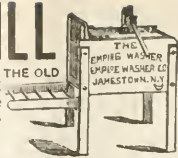 ILL
THE OLD
THE
EMPIRE WASHER
EMPIRE WASHER CO
JAMESTOWN.N.Y